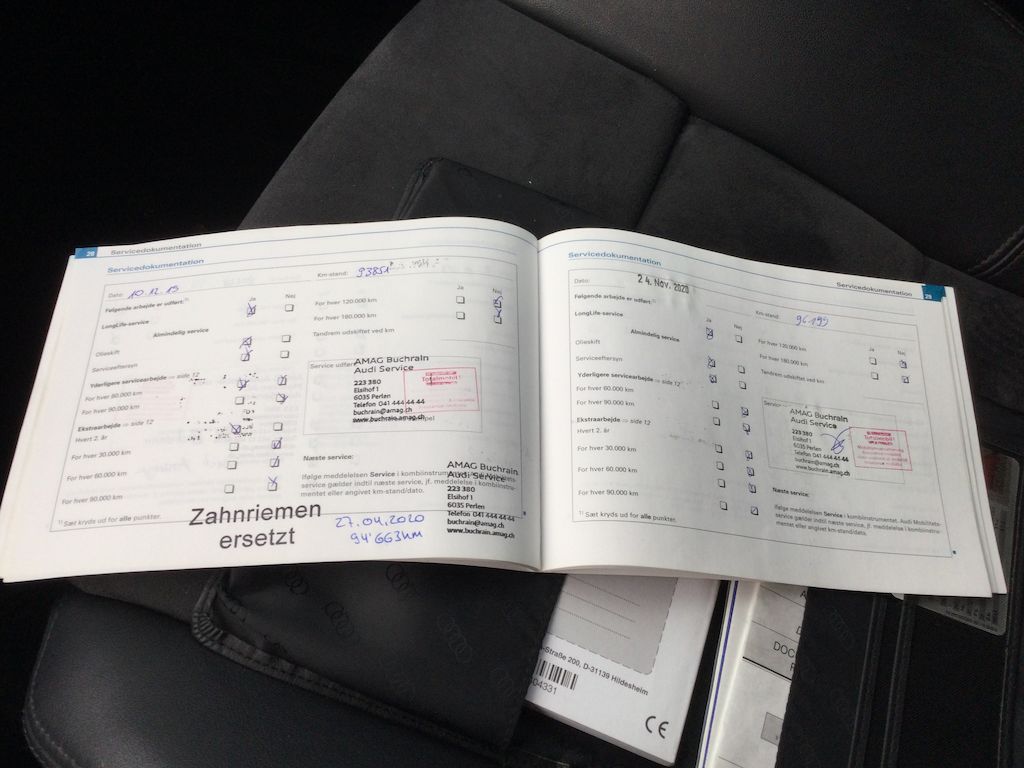 28 Servicedokumentation
Servicedokumentation
Dato: 10.12.19
Km-stand: 93851
Følgende arbejde er udført:¹⁾
Ja Nej
LongLife-service
Almindelig service
Olieskift
Serviceeftersyn
Yderligere servicearbejde ⇒ side 12
For hver 60.000 km
For hver 90.000 km
Ekstraarbejde ⇒ side 12
Hvert 2. år
For hver 30.000 km
For hver 60.000 km
For hver 90.000 km
¹⁾ Sæt kryds ud for alle punkter.
Ja Nej
For hver 120.000 km
For hver 180.000 km
Tandrem udskiftet ved km
Service udført
AMAG Buchrain
Audi Service
223 380
Elsihof 1
6035 Perlen
Telefon 041 444 44 44
buchrain@amag.ch
www.buchrain.amag.ch
Næste service:
Ifølge meddelelsen Service i kombiinstrumentet. Audi Mobilitets-
service gælder indtil næste service, jf. meddelelse i kombiinstru-
mentet eller angivet km-stand/dato.
Zahnriemen
ersetzt
27.04.2020
94'663km
AMAG Buchrain
Audi Service
223 380
Elsihof 1
6035 Perlen
Telefon 041 444 44 44
buchrain@amag.ch
www.buchrain.amag.ch
Servicedokumentation 29
Servicedokumentation
Dato: 24. Nov. 2020
Km-stand: 96 199
Følgende arbejde er udført:¹⁾
Ja Nej
LongLife-service
Almindelig service
Olieskift
Serviceeftersyn
Yderligere servicearbejde ⇒ side 12
For hver 60.000 km
For hver 90.000 km
Ekstraarbejde ⇒ side 12
Hvert 2. år
For hver 30.000 km
For hver 60.000 km
For hver 90.000 km
¹⁾ Sæt kryds ud for alle punkter.
Ja Nej
For hver 120.000 km
For hver 180.000 km
Tandrem udskiftet ved km
AMAG Buchrain
Audi Service
223 380
Elsihof 1
6035 Perlen
Telefon 041 444 44 44
buchrain@amag.ch
www.buchrain.amag.ch
Næste service:
Ifølge meddelelsen Service i kombiinstrumentet. Audi Mobilitets-
service gælder indtil næste service, jf. meddelelse i kombiinstru-
mentet eller angivet km-stand/dato.
-Straße 200, D-31139 Hildesheim
04331
CE
DOC